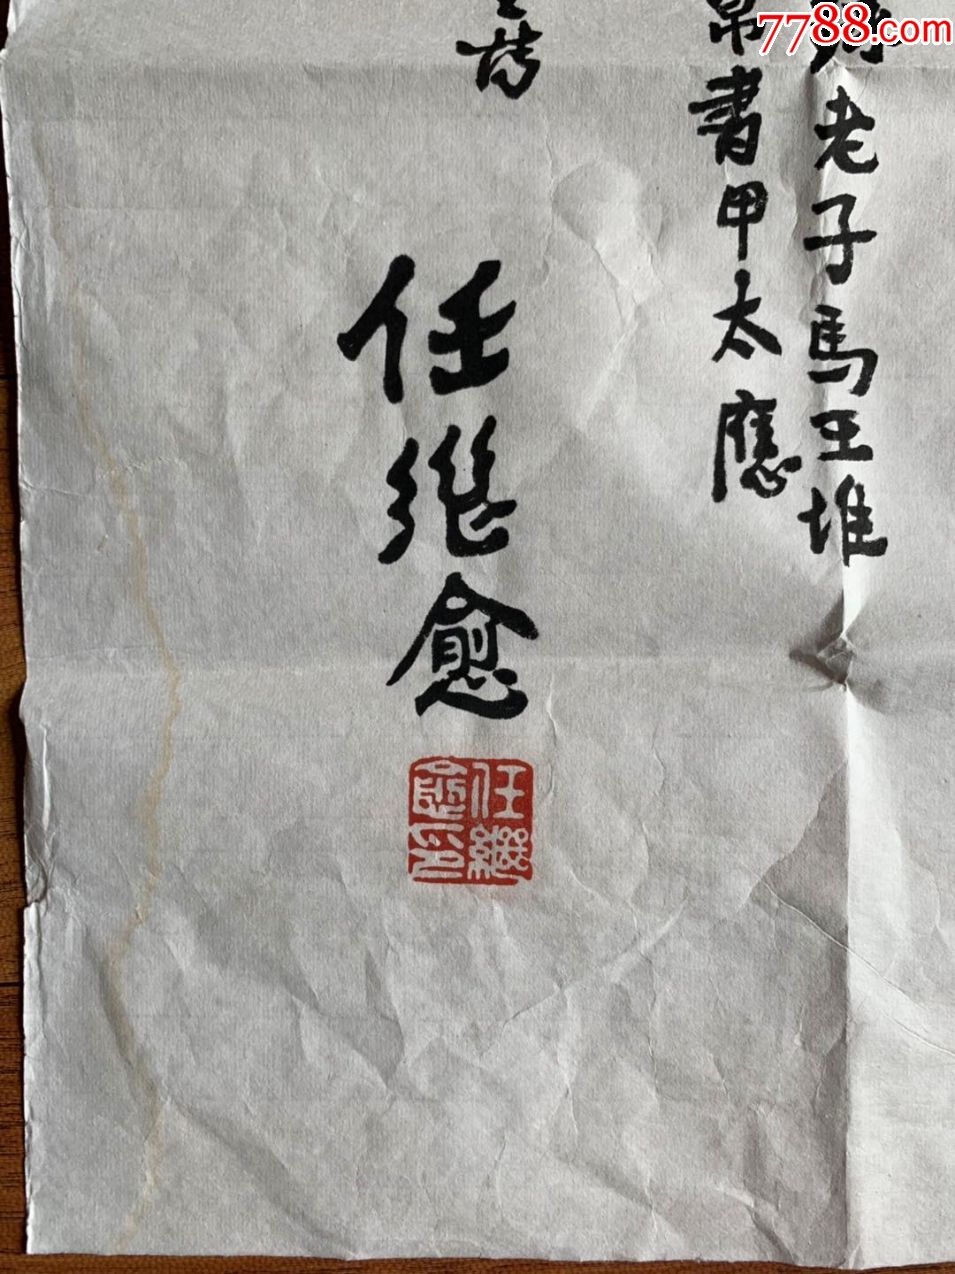 7788.com
老子馬王堆
帛書甲太應
任继愈
任繼愈印